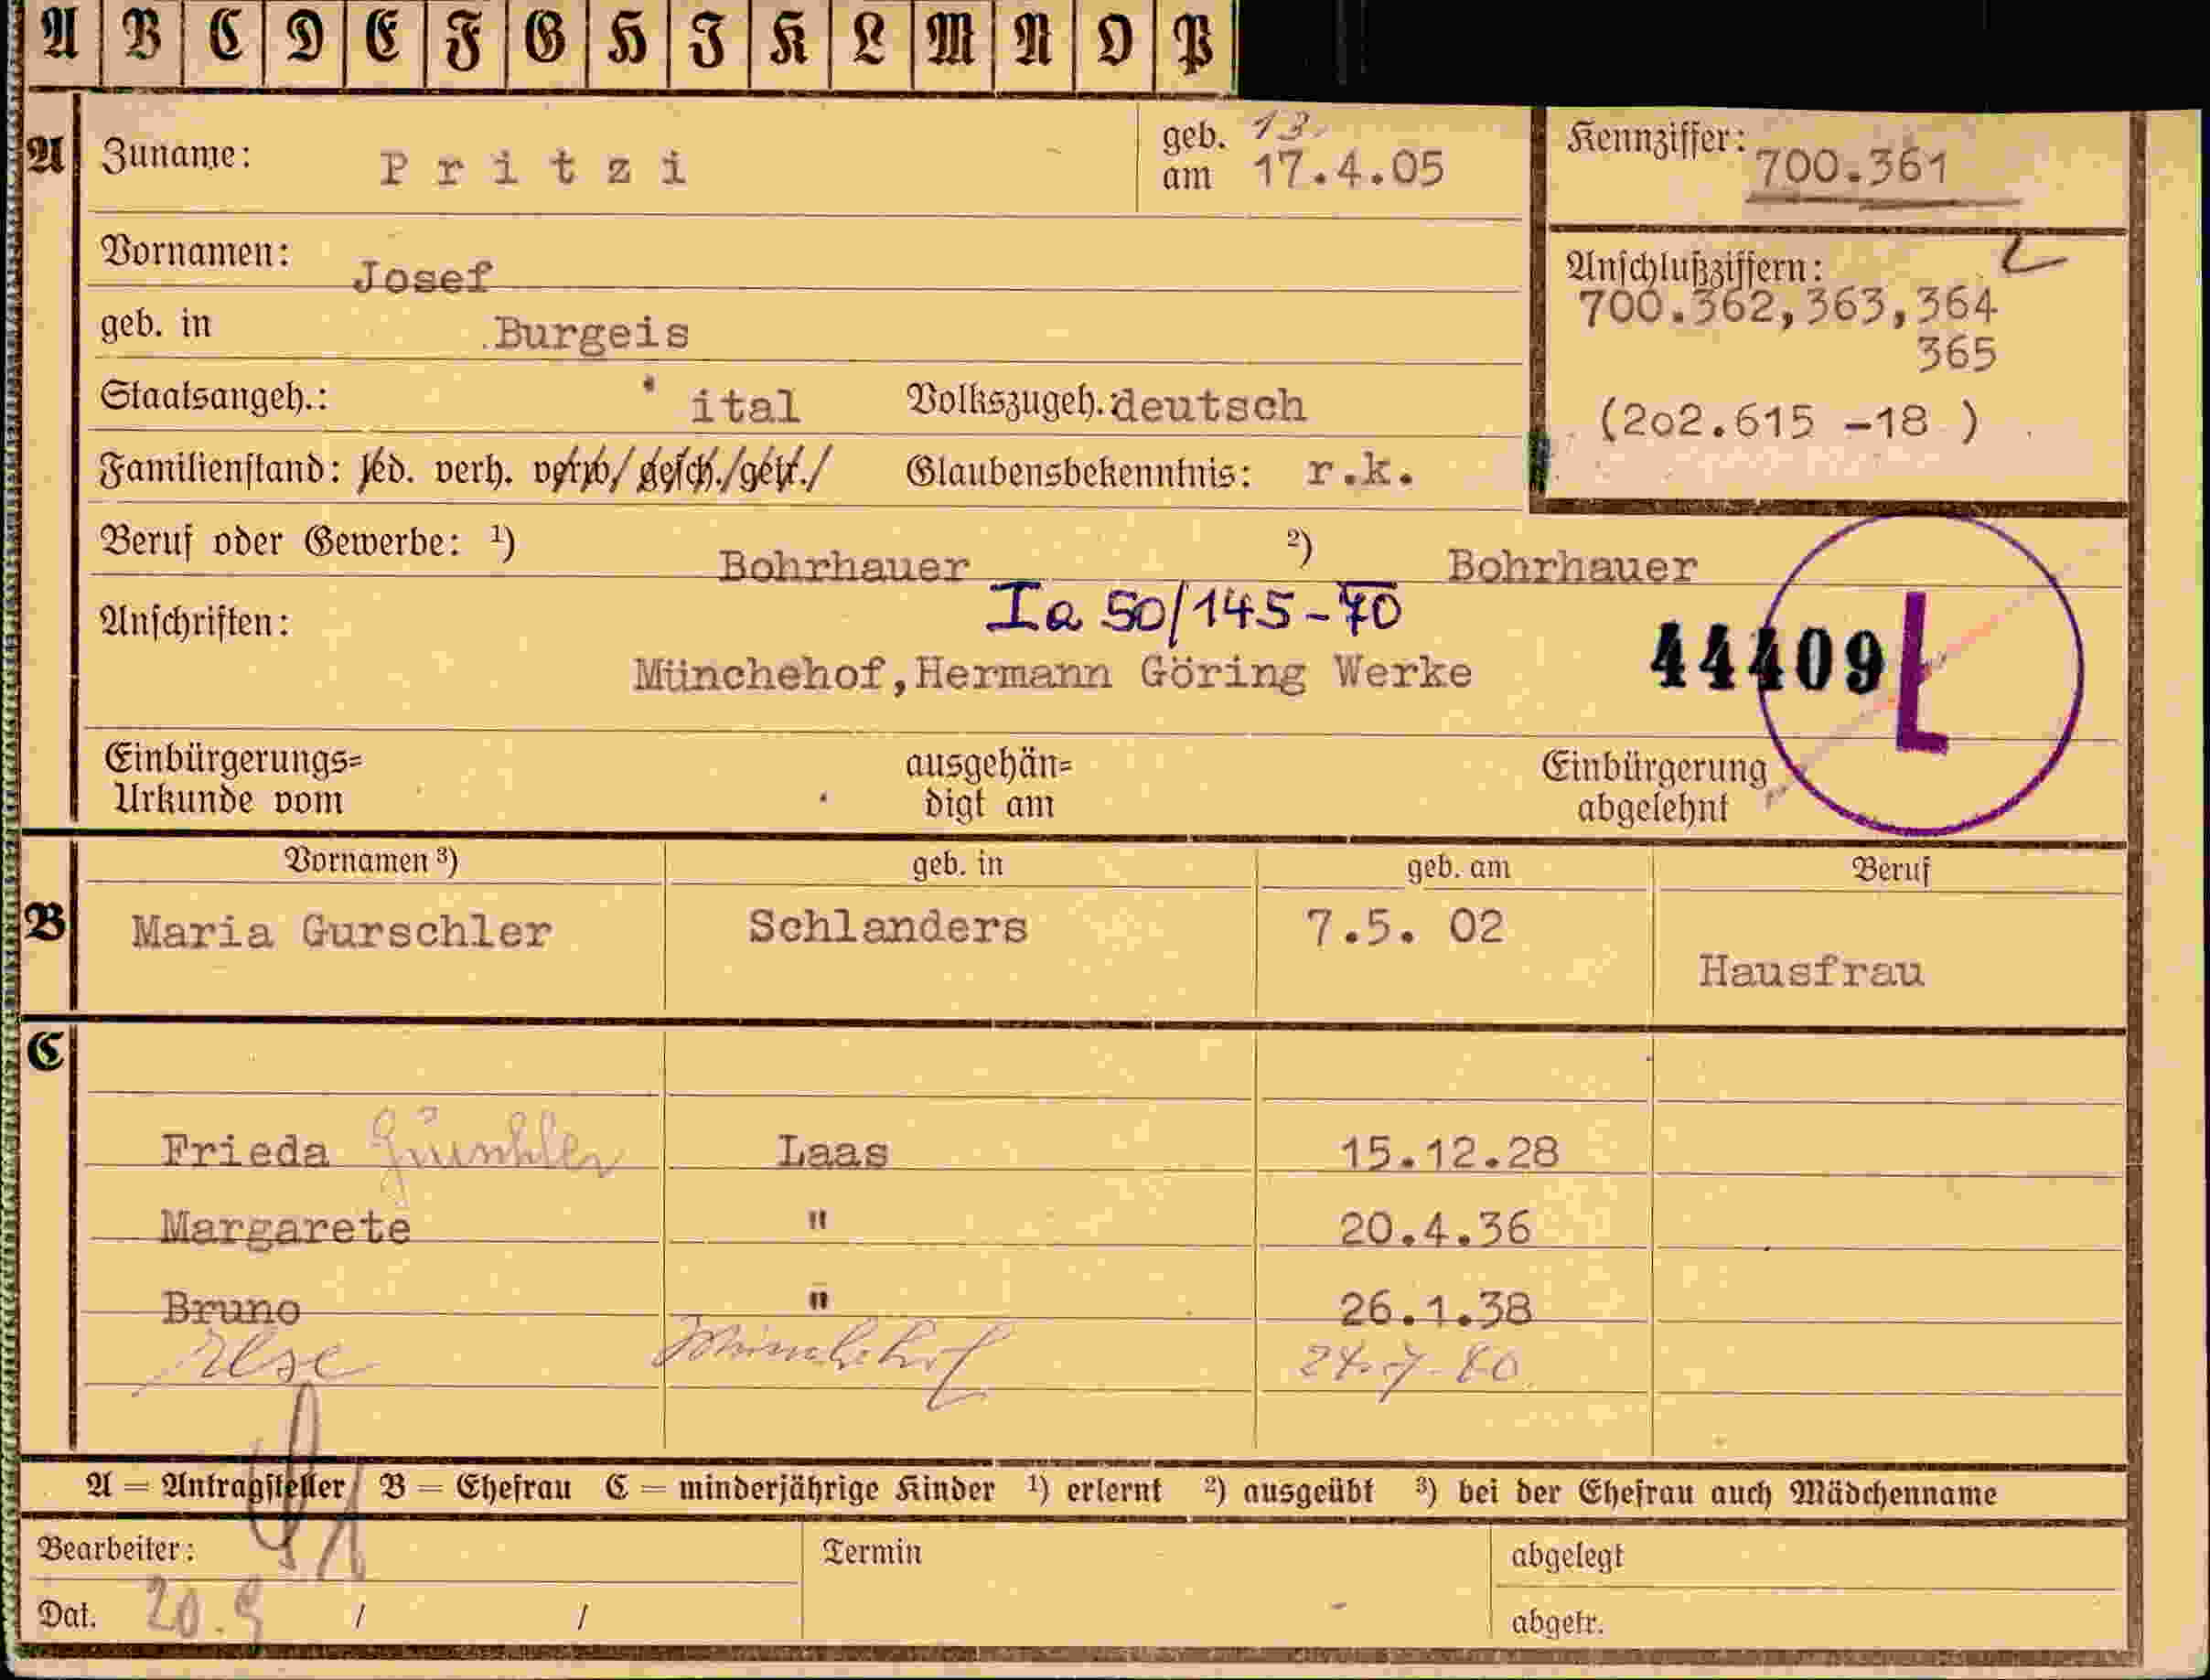 A B C D E F G H I K L M N O P
A Zuname: Pritzi geb. am 13. 17.4.05 Kennziffer: 700.361
Vornamen: Josef Anschlußziffern: 2
700.362,363,364
geb. in Burgeis 365
Staatsangeh.: ital Volkszugeh. deutsch (2o2.615 -18 )
Familienstand: led. verh. verw/ gesch./getr./ Glaubensbekenntnis: r.k.
Beruf oder Gewerbe: ¹) Bohrhauer ²) Bohrhauer
Ia 50/145-70
Anschriften: Münchehof,Hermann Göring Werke 44409 L
Einbürgerungs= ausgehän= Einbürgerung
Urkunde vom digt am abgelehnt
Vornamen ³) geb. in geb. am Beruf
B Maria Gurschler Schlanders 7.5. 02 Hausfrau
C
Frieda Laas 15.12.28
Margarete " 20.4.36
Bruno " 26.1.38
Else Münchehof
A = Antragsteller B = Ehefrau C = minderjährige Kinder ¹) erlernt ²) ausgeübt ³) bei der Ehefrau auch Mädchenname
Bearbeiter: Termin abgelegt
Dat. 20.9 / / abgetr.